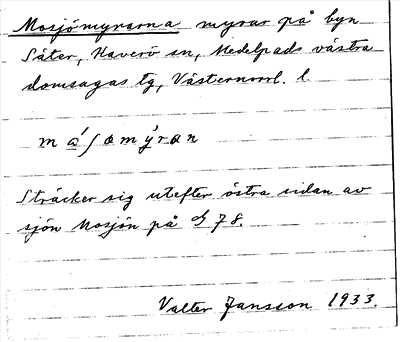 Mosjömyrarna myrar på byn
Säter, Haverö sn, Medelpads västra
domsagas tg, Västernorrl. l.
má ʃ o m ý r a n
Sträcker sig utefter östra sidan av
sjön Mosjön på 78.
Valter Jansson 1933.